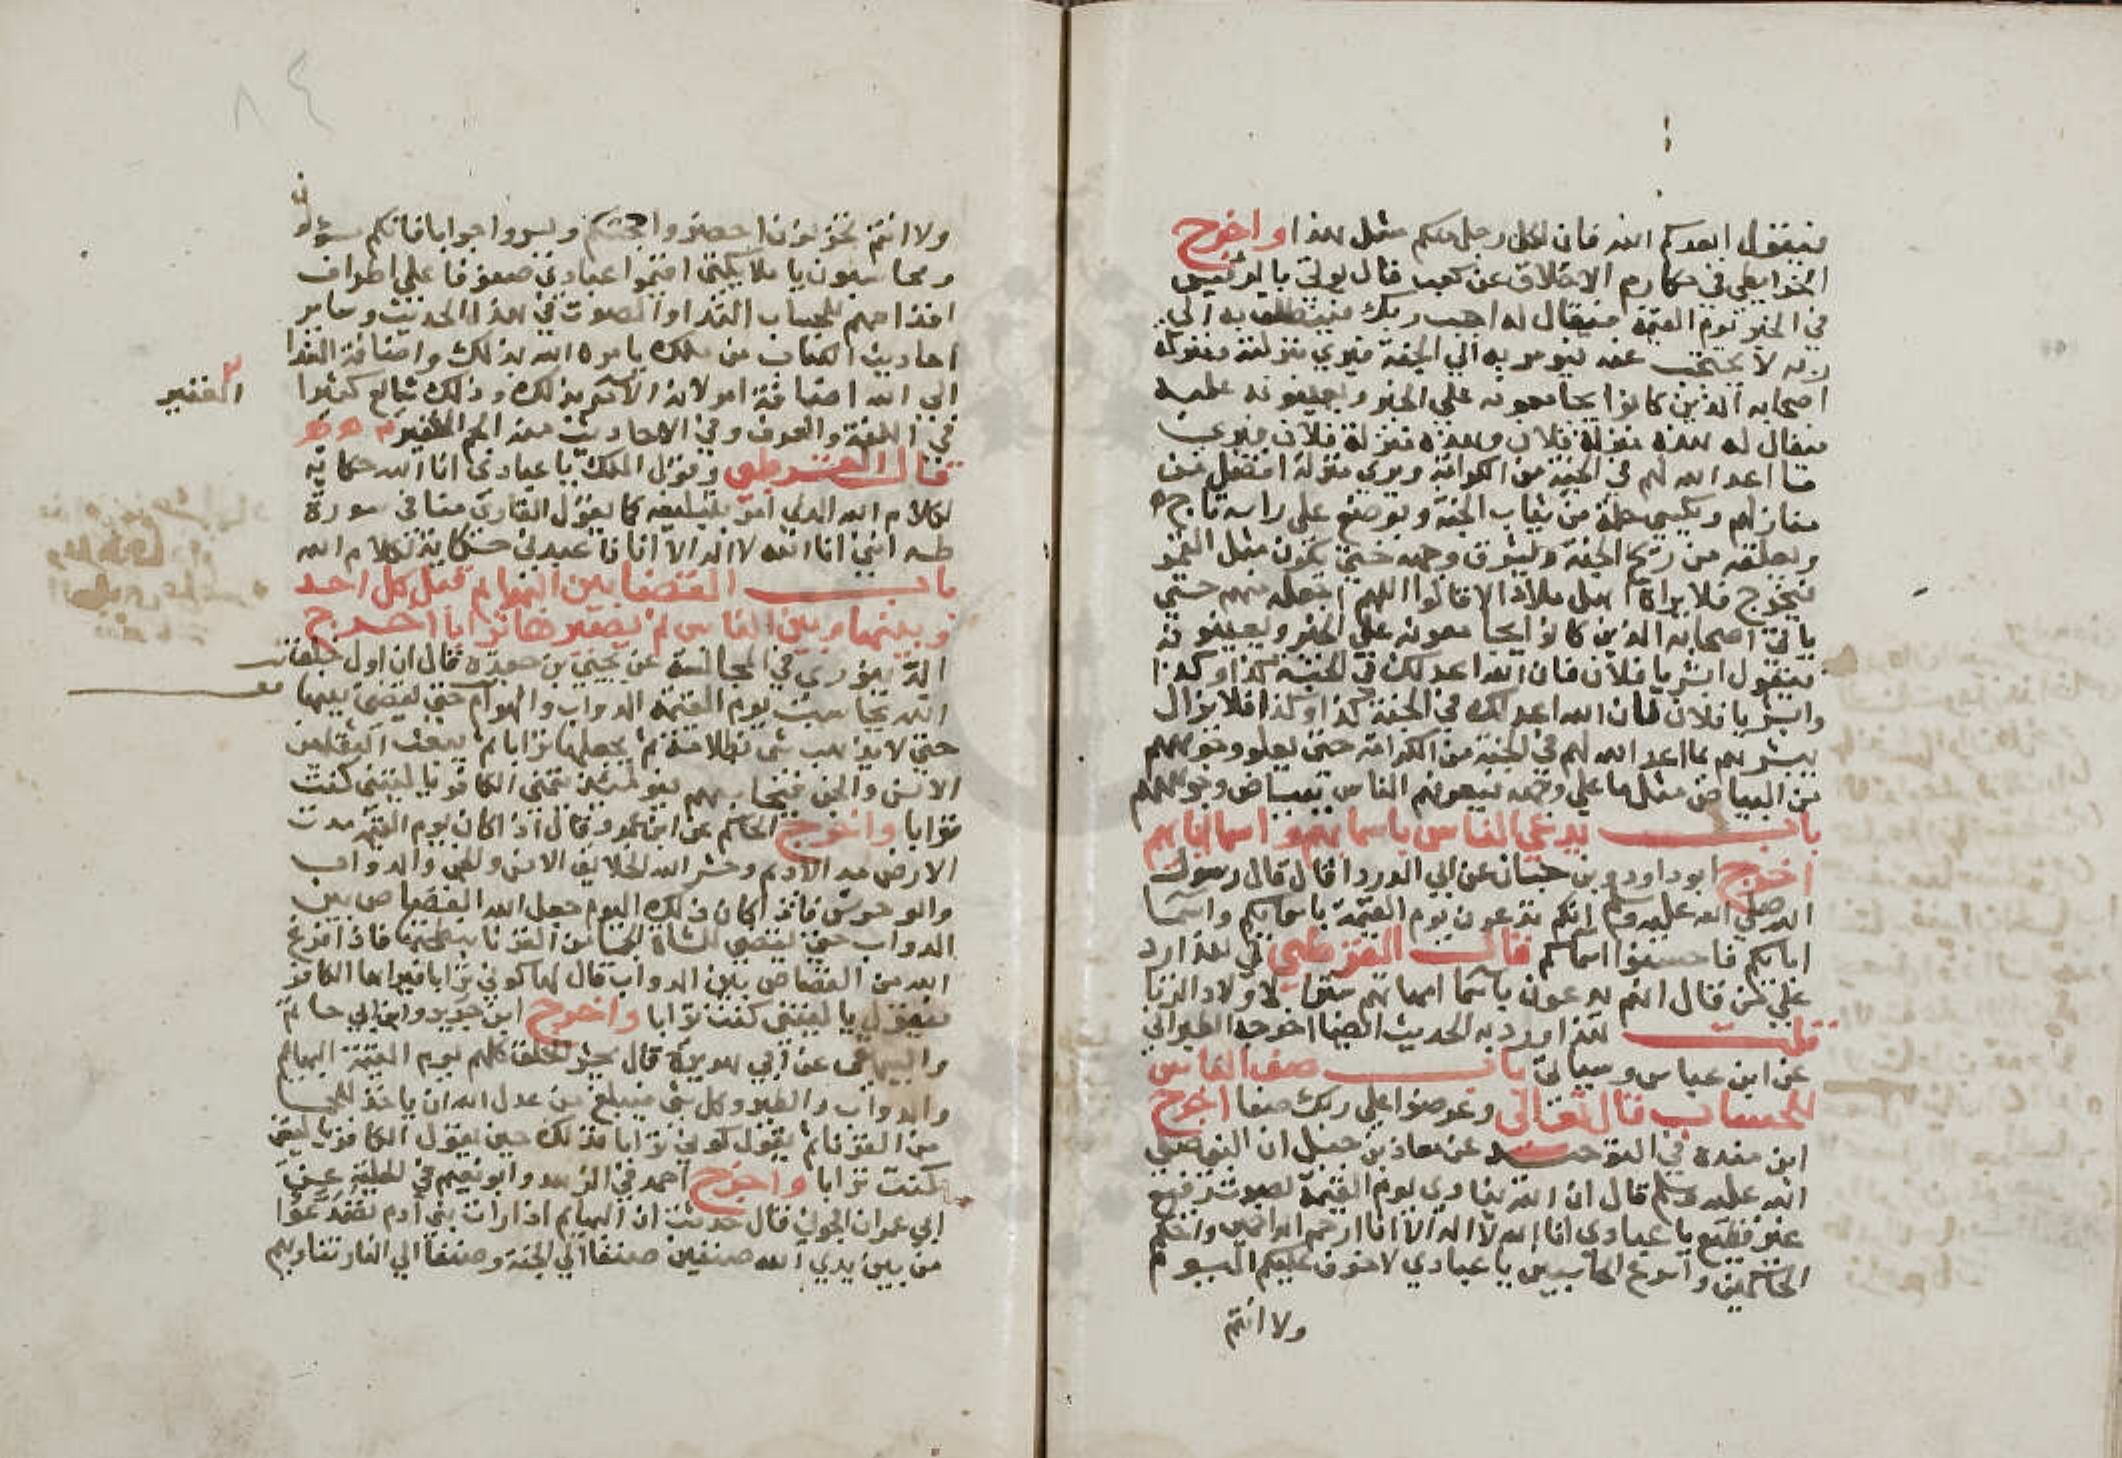 فيقول ابعدكم الله فان لكل رجل منكم مثل هذا واخرج
الخرايطي في مكارم الاخلاق عن كعب قال يوتي بالرئيس
في الخير يوم القيمة فيقال له اجب ربك فينطلق به الي
ربه لا يحتجب عنه فيومر به الي الجنة فيري منزلته ومنزلة
اصحابه الذين كانوا يجامعونه علي الخير ويعينونه عليه
فيقال له هذه منزلة فلان وهذه منزلة فلان فيري
ما اعد الله لهم في الجنة من الكرامة ويري منزلة افضل من
منازلهم ويكسي حلة من ثياب الجنة ويوضع علي راسه تاج
ويعلقه من ريح الجنة ويشرق وجهه حتي يكون مثل القمر
فيخرج فلا يراه اهل ملاء الا قالوا اللهم اجعله منهم حتي
ياتي اصحابه الذين كانوا يجامعونه علي الخير ويعينونه
فيقول ابشر يا فلان فان الله اعد لك في الجنة كذا وكذا
وابشر يا فلان فان الله اعد لك في الجنة كذا وكذا فلا يزال
يبشرهم بما اعد الله لهم في الجنة من الكرامة حتي يعلو وجوههم
من البياض مثل ما علي وجهه فيعرفهم الناس ببياض وجوههم
باب يدعي الناس باسمايهم واسما ابايهم
اخرج ابوداود وبن حبان عن ابي الدردا قال قال رسول
الله صلي الله عليه وسلم انكم تدعون يوم القيمة باسمايكم واسما
ابايكم فاحسنوا اسماكم قال القرطبي في هذا رد
علي من قال انهم يدعون باسما امهاتهم سترا لاولاد الزنا
قلت هذا ورد به الحديث ايضا اخرجه الطبراني
عن ابن عباس وسياتي باب صف الناس
للحساب قال تعالي وعرضوا علي ربك صفا اخرج
ابن منده في التوحيد عن معاذ بن جبل ان النبي صلي
الله عليه وسلم قال ان الله ينادي يوم القيمة بصوت رفيع
غير فظيع يا عبادي انا الله لا اله الا انا ارحم الراحمين واحكم
الحاكمين واسرع الحاسبين يا عبادي لا خوف عليكم اليوم
ولا انتم
ولا انتم تحزنون احضروا حجتكم ويسروا جوابا فانكم مسؤلون
ومحاسبون يا ملايكتي اقيموا عبادي صفوفا علي اطراف
اقدامهم للحساب الندا والصوت في هذا الحديث وساير
احاديث الكتاب من ملك يامره الله بذلك واضافة الندا
الي الله اضافة امر لانه الامر بذلك وذلك شايع كثيرا
في اللغة والعرف وفي الاحاديث منه الجم الغفير
الغفير
قال القرطبي وقول الملك يا عبادي انا الله حكاية
لكلام الله الذي امر بتبليغه كما يقول القاري منا في سورة
طه انني انا الله لا اله الا انا فاعبدني حكاية لكلام الله
باب القضا بين البهايم قبل كل احد
وبينها وبين الناس ثم تصير ترابا اخرج
الدينوري في المجالسة عن يحيي بن جعدة قال ان اول خلق
الله يحاسب يوم القيمة الدواب والهوام حتي يقضي بينها
حتي لا يذهب شي بظلامته ثم يجعلها ترابا ثم يبعث الثقلين
الانس والجن فيحاسبهم فيومئذ يتمني الكافر يا ليتني كنت
ترابا واخرج الحاكم عن ابن عمرو قال اذا كان يوم القيمة مدت
الارض مد الاديم وحشر الله الخلايق الانس والجن والدواب
والوحوش فاذا كان ذلك اليوم جعل الله القصاص بين
الدواب حتي يقتص للشاة الجما من القرنا بنطحتها فاذا فرغ
الله من القصاص بين الدواب قال لها كوني ترابا فيراها الكافر
فيقول يا ليتني كنت ترابا واخرج ابن جرير وابن ابي حاتم
والبيهقي عن ابي هريرة قال يحشر الخلق كلهم يوم القيمة البهايم
والدواب والطير وكل شي فيبلغ من عدل الله ان ياخذ للجما
من القرنا ثم يقول كوني ترابا فذلك حين يقول الكافر يا ليتني
كنت ترابا واخرج احمد في الزهد وابو نعيم في الحلية عن
ابي عمران الجوني قال حدثت ان البهايم اذا رات بني ادم تصدعوا
من بين يدي الله صنفين صنفا الي الجنة وصنفا الي النار تناديهم